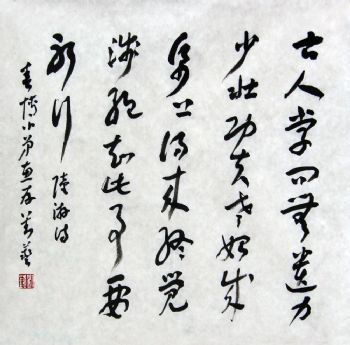 古人学问無遗力
少壮功夫老始成
纸上得来终觉
浅绝知此事要
躬行 陸游诗
小弟惠存